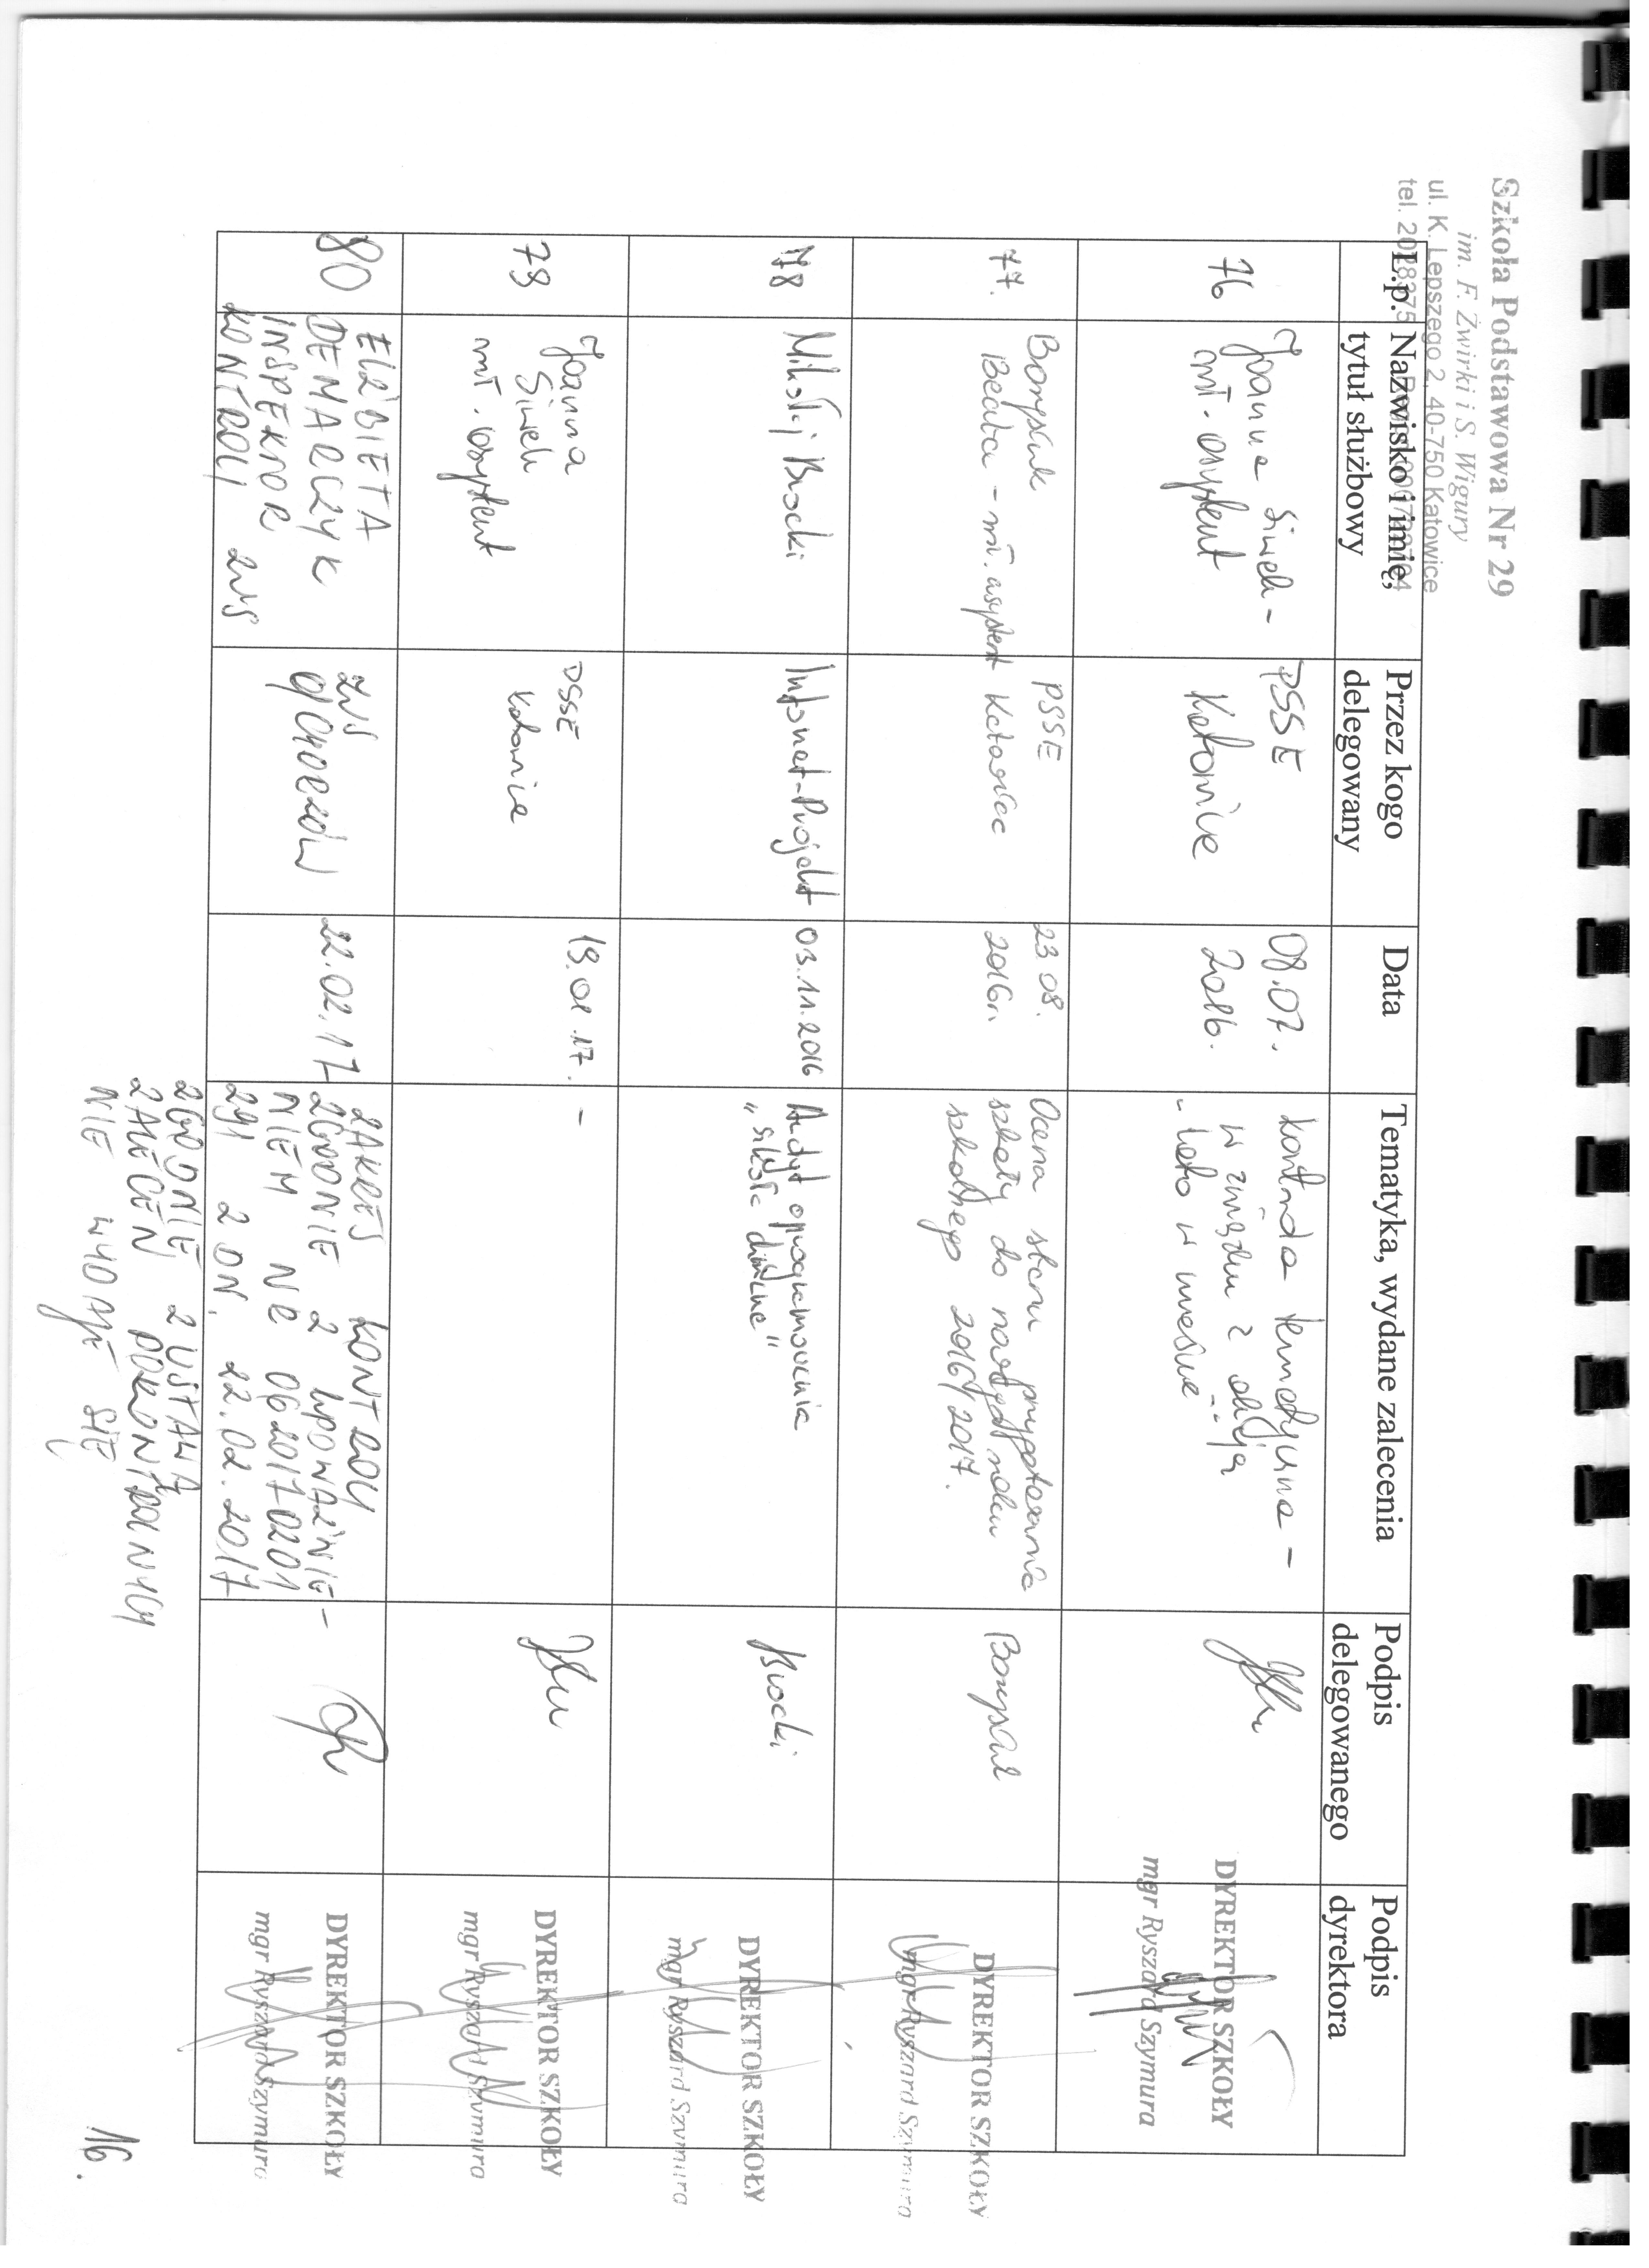 Szkoła Podstawowa Nr 29
im. F. Żwirki i S. Wigury
ul. K. Lepszego 2, 40-750 Katowice
tel. 2028375
L.p.
Nazwisko i imię,
tytuł służbowy
Przez kogo
delegowany
Data
Tematyka, wydane zalecenia
Podpis
delegowanego
Podpis
dyrektora
76
Joanna
mł. asystent
PSSE
Katowice
08.07.
2016.
kontrola tematyczna -
w związku z akcją
"Lato w mieście"
DYREKTOR SZKOŁY
mgr Ryszard Szymura
77.
Beata - mł. asystent
PSSE
Katowice
23 08.
2016r.
Ocena stanu przygotowania
szkoły do nowego roku
szkolnego 2016/2017.
DYREKTOR SZKOŁY
mgr Ryszard Szymura
78
Mikołaj Brocki
Infonet-Projekt
03.11.2016
Audyt oprogramowania
Brocki
DYREKTOR SZKOŁY
mgr Ryszard Szymura
79
Joanna
mł. asystent
PSSE
Katowice
19.01.17.
-
DYREKTOR SZKOŁY
mgr Ryszard Szymura
80
ELŻBIETA
DEMARCZYK
INSPEKTOR
KONTROLI ZUS
ZUS
O/CHORZÓW
22.02.17
ZAKRES KONTROLI
ZGODNIE Z UPOWAŻNIE-
NIEM NR 0620170201
291 Z DN. 22.02.2017
ZGODNIE Z USTAWĄ
ZALECEŃ POKONTROLNYCH
NIE WYDAJE SIĘ
DYREKTOR SZKOŁY
mgr Ryszard Szymura
16.